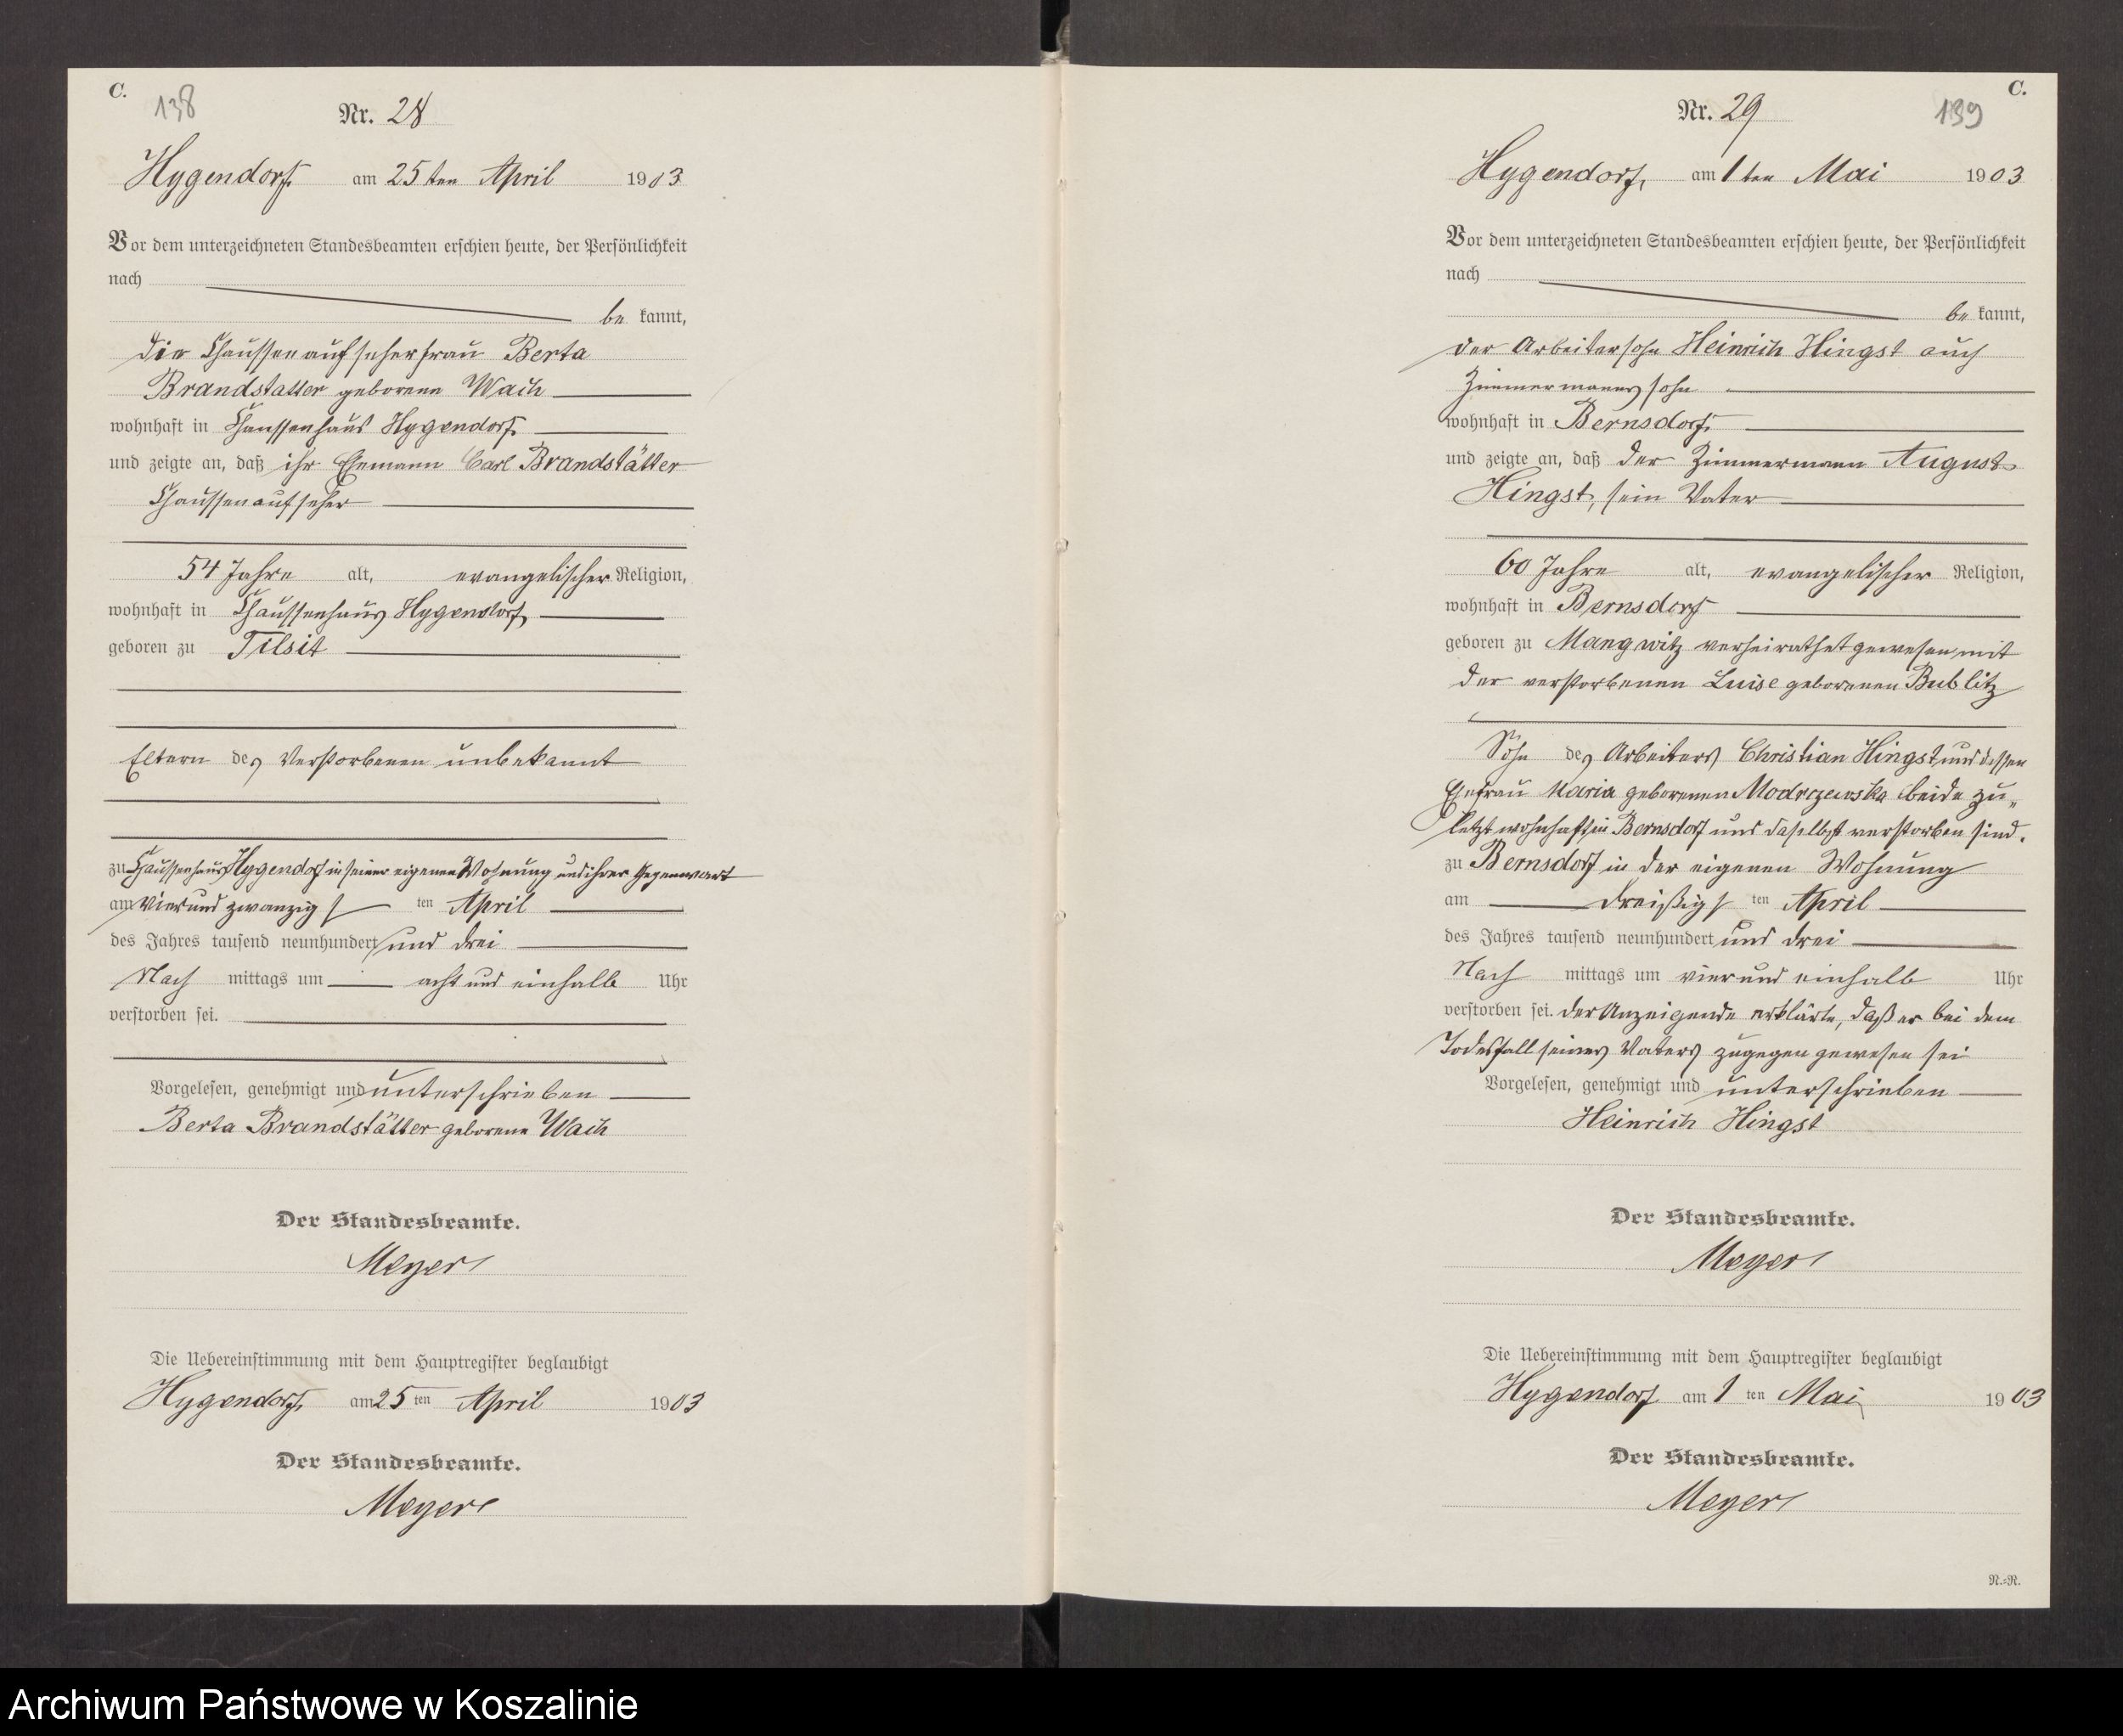 C.
138
Nr. 28
Hygendorf, am 25ten April 1903
Vor dem unterzeichneten Standesbeamten erschien heute, der Persönlichkeit
nach
be kannt,
die Chausseeaufseherfrau Berta
Brandstatter geborene Wach
wohnhaft in Chausseehaus Hygendorf
und zeigte an, daß ihr Ehemann Carl Brandstätter
Chausseeaufseher
54 Jahre alt, evangelischer Religion,
wohnhaft in Chausseehaus Hygendorf,
geboren zu Tilsit
Eltern des Verstorbenen unbekannt
zu Chausseehaus Hygendorf in seiner eigenen Wohnung und ihrer Gegenwart
am vierundzwanzigs ten April
des Jahres tausend neunhundert und drei
Nach mittags um acht und einhalb Uhr
verstorben sei.
Vorgelesen, genehmigt und unterschrieben
Berta Brandstätter geborene Wach
Der Standesbeamte.
Meyer
Die Uebereinstimmung mit dem Hauptregister beglaubigt
Hygendorf, am 25 ten April 1903
Der Standesbeamte.
Meyer
C.
139
Nr. 29
Hygendorf, am 1ten Mai 1903
Vor dem unterzeichneten Standesbeamten erschien heute, der Persönlichkeit
nach
be kannt,
der Arbeitersohn Heinrich Hingst auch
Zimmermannssohn
wohnhaft in Bernsdorf
und zeigte an, daß der Zimmermann August
Hingst, sein Vater
60 Jahre alt, evangelischer Religion,
wohnhaft in Bernsdorf
geboren zu Mangwitz verheirathet gewesen mit
der verstorbenen Luise geborenen Bublitz
Sohn des Arbeiters Christian Hingst und dessen
Ehefrau Maria geborenen Modrczewska beide zu„
letzt wohnhaft in Bernsdorf und daselbst verstorben sind.
zu Bernsdorf in der eigenen Wohnung
am dreißigs ten April
des Jahres tausend neunhundert und drei
Nach mittags um vier und einhalb Uhr
verstorben sei. Der Anzeigende erklärte, daß er bei dem
Todesfall seines Vaters zugegen gewesen sei
Vorgelesen, genehmigt und unterschrieben
Heinrich Hingst
Der Standesbeamte.
Meyer
Die Uebereinstimmung mit dem Hauptregister beglaubigt
Hygendorf am 1 ten Mai 1903
Der Standesbeamte.
Meyer
N.=N.
Archiwum Państwowe w Koszalinie